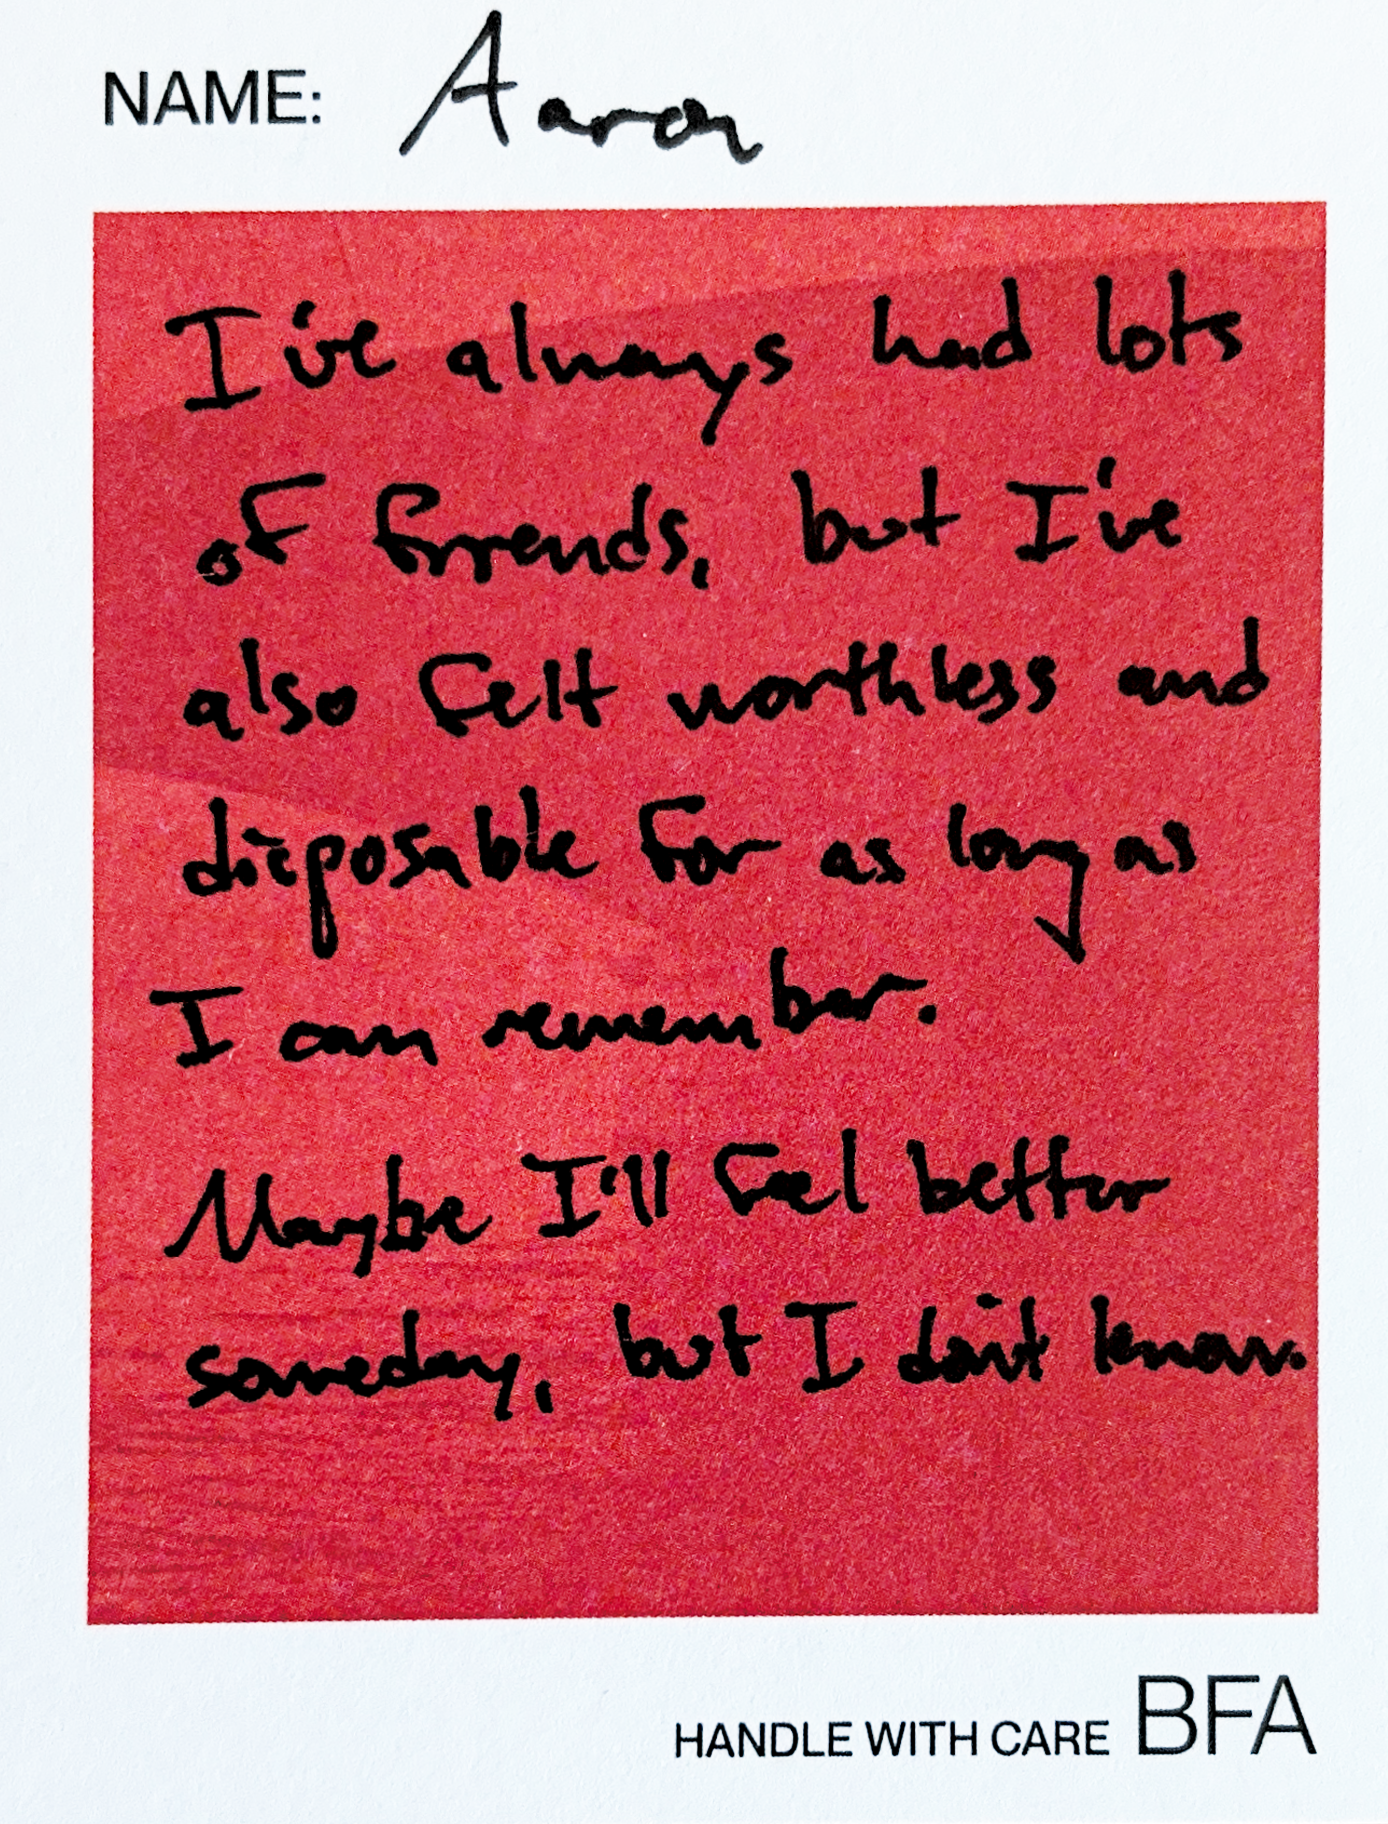 NAME: Aaron
I've always had lots
of friends, but I've
also felt worthless and
disposable for as long as
I can remember.
Maybe I'll feel better
someday, but I don't know.
HANDLE WITH CARE BFA